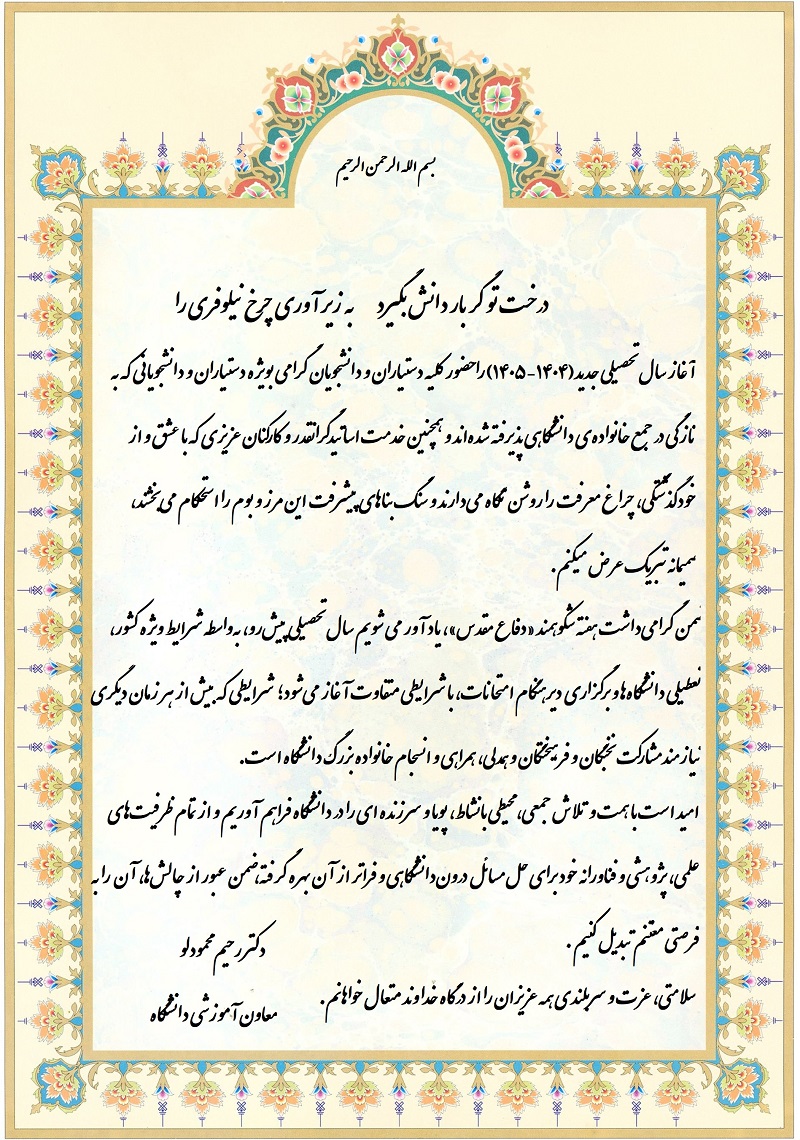 بسم الله الرحمن الرحیم
درخت تو گر بار دانش بگیرد به زیر آوری چرخ نیلوفری را
آغاز سال تحصیلی جدید (۱۴۰۴-۱۴۰۵) را حضور کلیه دستیاران و دانشجویان گرامی بویژه دستیاران و دانشجویانی که به
تازگی در جمع خانواده‌ی دانشگاهی پذیرفته شده‌اند و همچنین خدمت اساتید گرانقدر و کارکنان عزیزی که با عشق و از
خودگذشتگی، چراغ معرفت را روشن نگاه می‌دارند و سنگ بناهای پیشرفت این مرز و بوم را استحکام می‌بخشند،
صمیمانه تبریک عرض میکنم.
ضمن گرامی‌داشت هفته شکوهمند «دفاع مقدس»، یادآور می شویم سال تحصیلی پیش‌رو، به‌واسطه شرایط ویژه کشور،
تعطیلی دانشگاه‌ها و برگزاری دیرهنگام امتحانات، با شرایطی متفاوت آغاز می‌شود؛ شرایطی که بیش از هر زمان دیگری
نیازمند مشارکت نخبگان و فرهیختگان و همدلی، همراهی و انسجام خانواده بزرگ دانشگاه است.
امید است با همت و تلاش جمعی، محیطی بانشاط، پویا و سرزنده ای را در دانشگاه فراهم آوریم و از تمام ظرفیت‌های
علمی، پژوهشی و فناورانه خود برای حل مسائل درون‌دانشگاهی و فراتر از آن بهره گرفته، ضمن عبور از چالش‌ها، آن را به
فرصتی مغتنم تبدیل کنیم.
دکتر رحیم محمودلو
سلامتی، عزت و سربلندی همه عزیزان را از درگاه خداوند متعال خواهانم.
معاون آموزشی دانشگاه